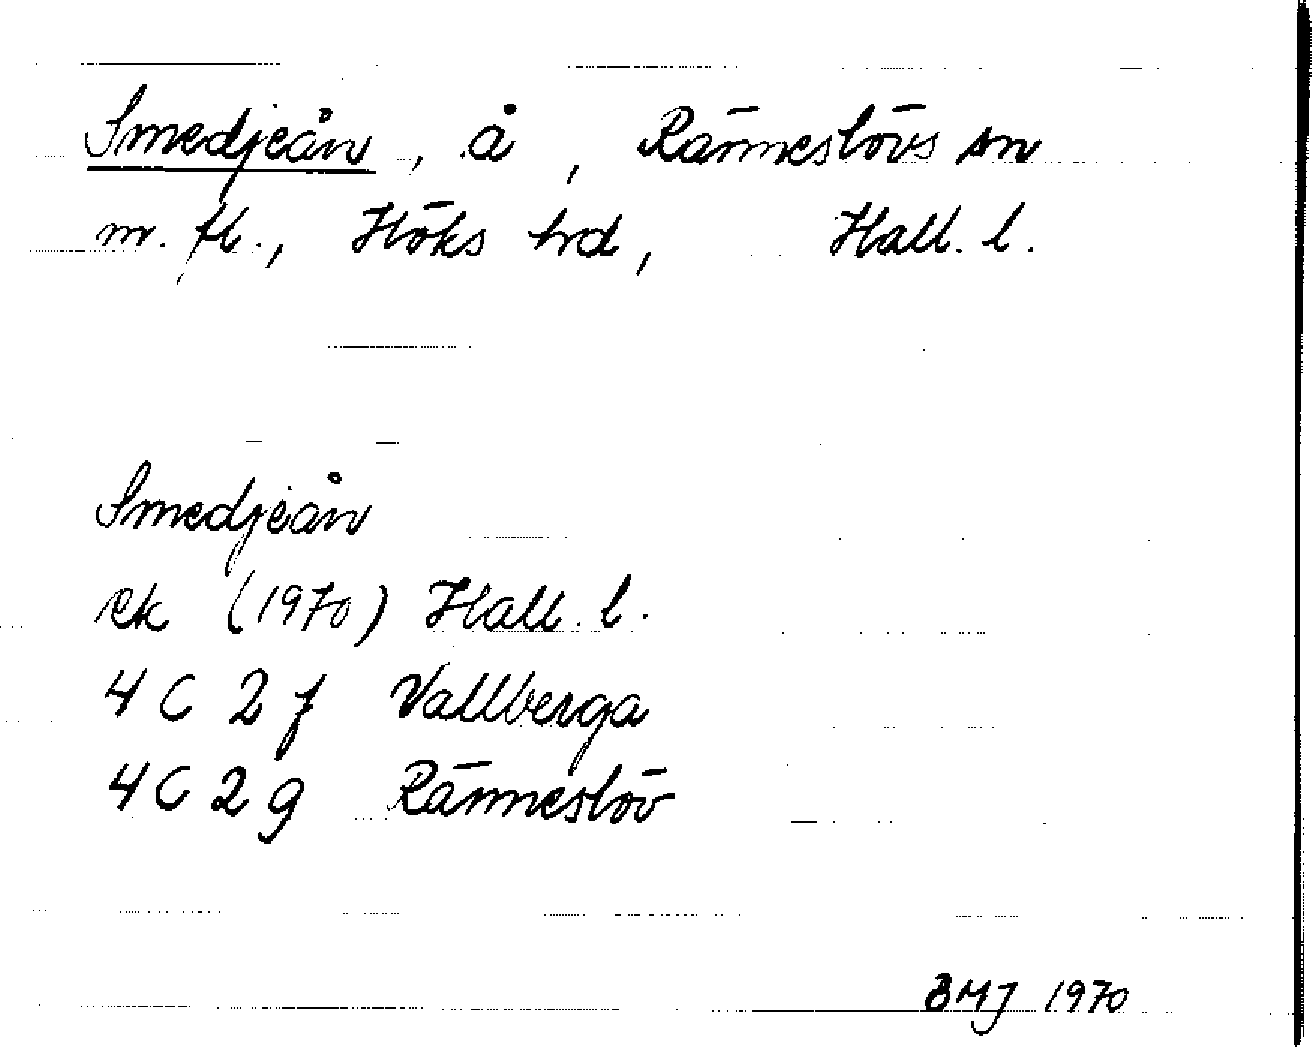 Smedjeån, å, Ränneslövs sn
m. fl., Höks hrd, Hall. l.
Smedjeån
ek (1970) Hall. l.
4 C 2 f Vallberga
4 C 2 g Ränneslöv
BMJ 1970